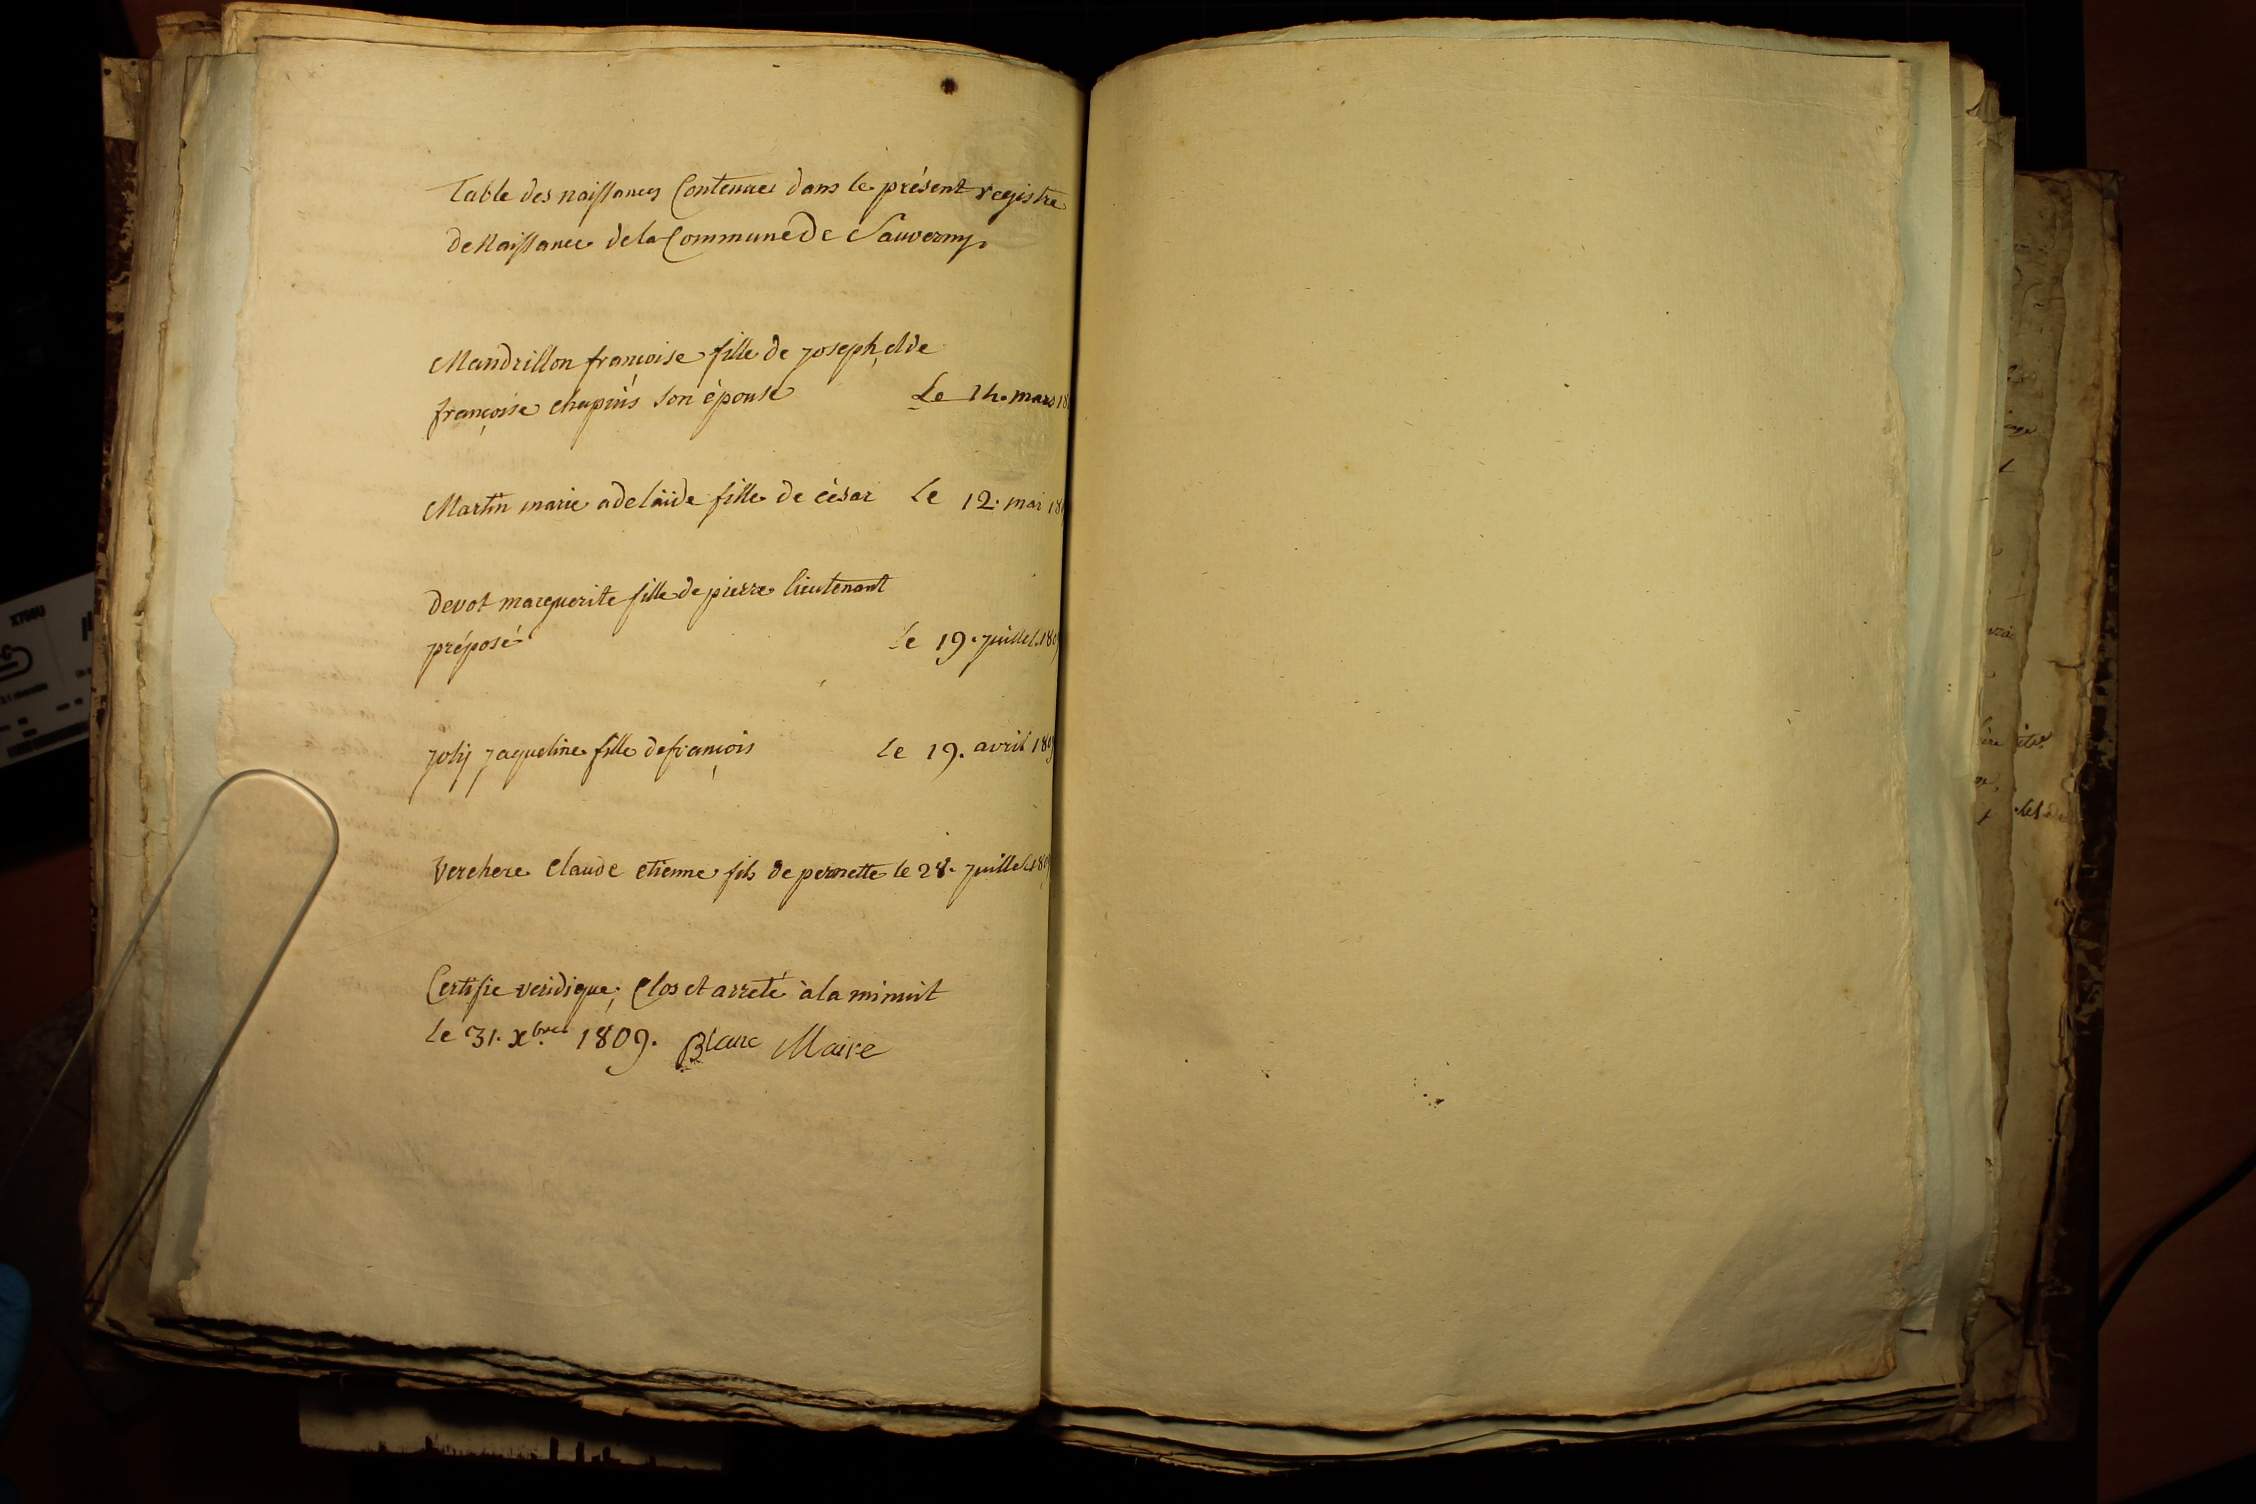 Table des naissances Contenues dans le présent registre
de Naissance de la Commune de Sauverny.
Mandrillon françoise fille de joseph, et de
françoise chapuis son épouse Le 14. mars 18
Martin marie adelaïde fille de césar le 12. mai 18
devot marguerite fille de pierre lieutenant
préposé le 19. juillet 180
joly jaqueline fille de françois le 19. avril 180
Verchere Claude etienne fils de pernette le 28. juillet 180
Certifie veridique; Clos et arreté à la minuit
le 31. xbre 1809. Blanc Maire